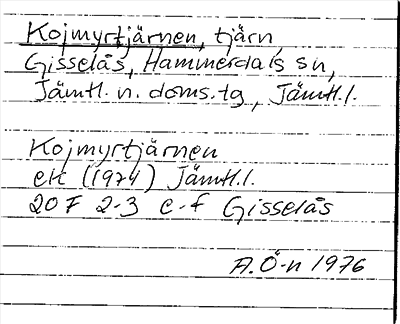 Kojmyrtjärnen, tjärn,
Gisselås, Hammerdals sn,
Jämtl. n. doms.tg, Jämtl.l.
Kojmyrtjärnen
ek (1974) Jämtl.l.
20F 2-3 e-f Gisselås
A.Ö-n 1976